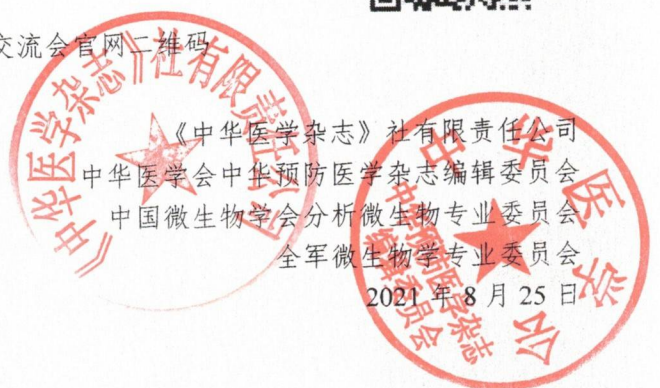 交流会官网二维码
《中华医学杂志》社有限责任公司
中华医学会中华预防医学杂志编辑委员会
中国微生物学会分析微生物专业委员会
全军微生物学专业委员会
2021 年 8 月 25 日
《中华医学杂志》社有限责任公司
中华医学会
中华预防医学杂志
编辑委员会